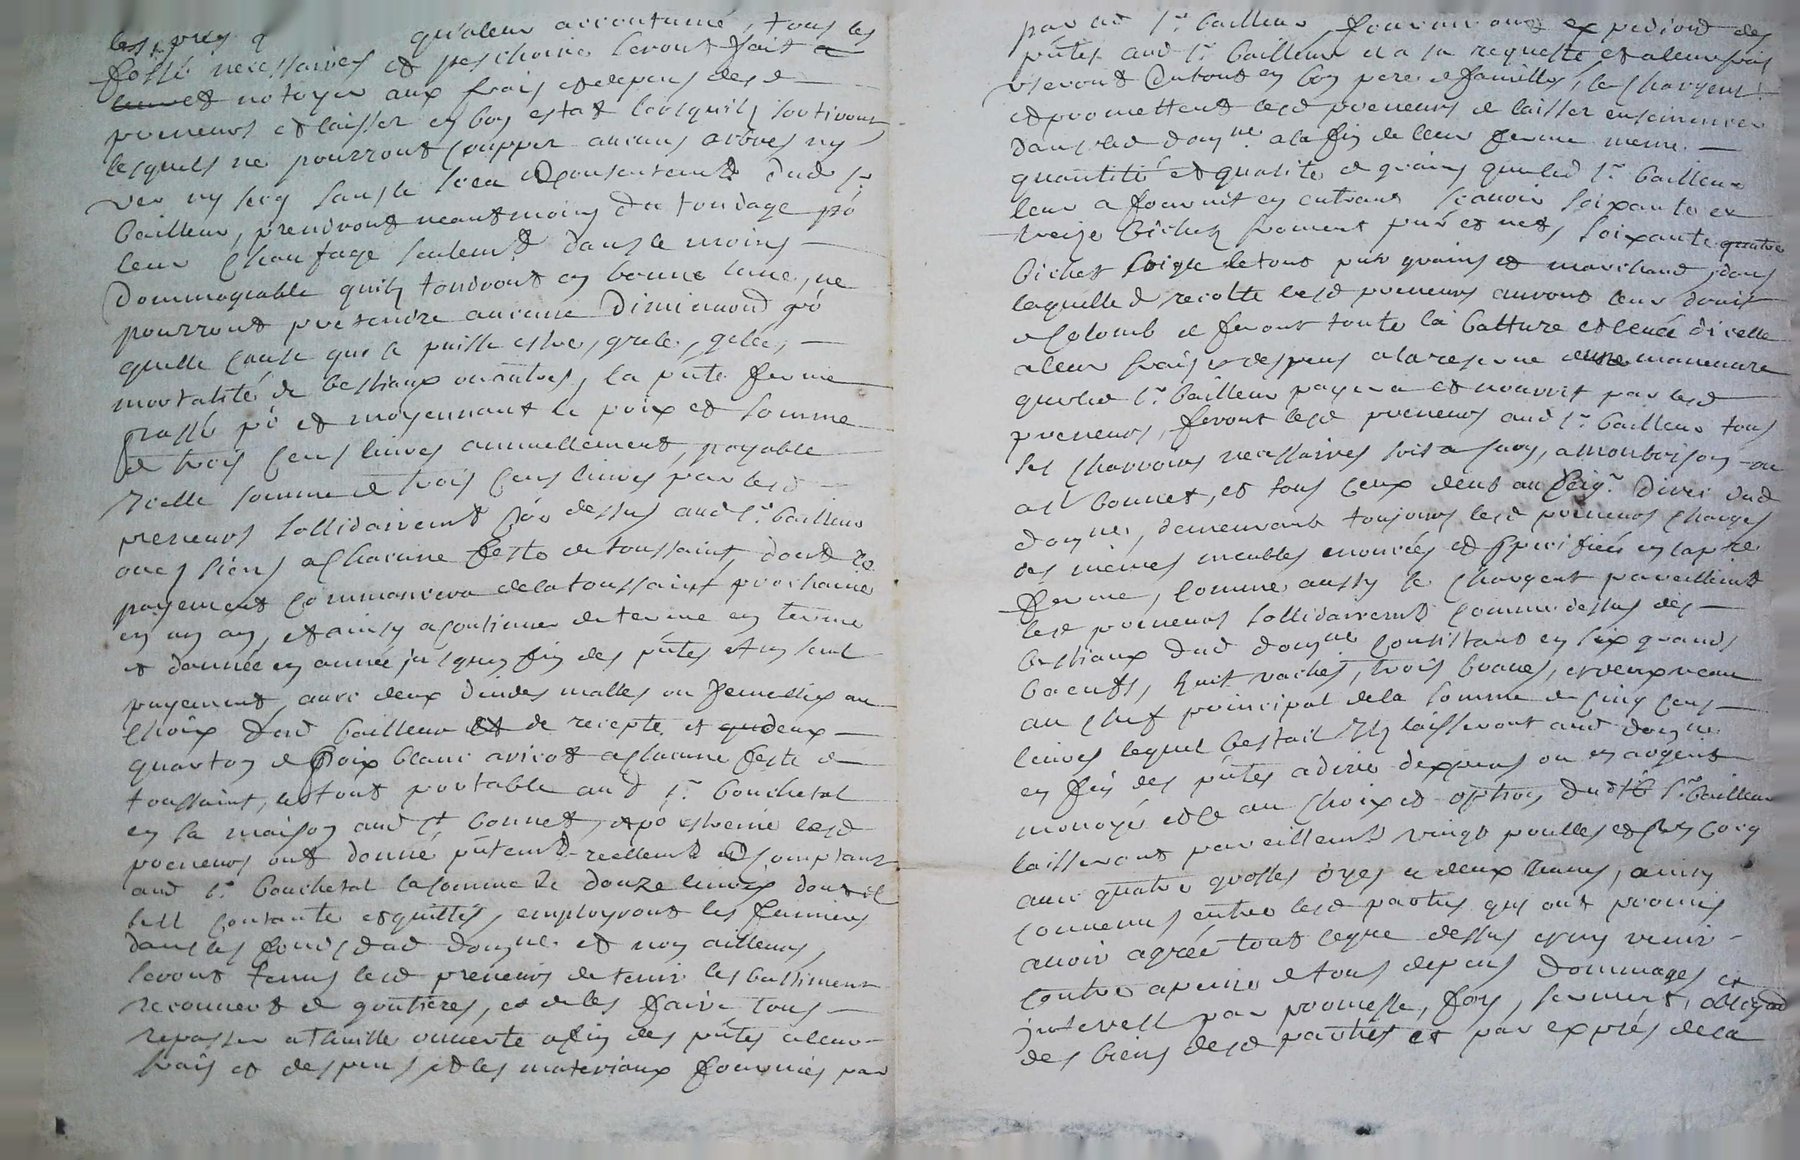 les prez q qualeur accoutumé, tous les
fossé necessaires et peschoire seront fait a
et netoyer aux frais et depens desd
preneurs et laisser en bon estat lorsquilz sortiront
lesquels ne pourront coupper aucuns arbres ny
ver ny secq sans le sceu & consentemt dud sr
bailleur, prendront neantmoins du tondage po
leur chauffage seulemt dans le moins
dommageable quilz tondront en bonne lune, ne
pourront pretendre aucune diminuaon po
quelle cause que se puisse estre, grele, gelée,
mortalité de bestiaux ou autres, la pnte ferme
passé po et moyennant le prix et somme
de trois cens livres annuellement, payable
icelle somme de trois cens livres par lesd
preneurs sollidairemt coe dessus aud sr bailleur
ou es siens a chacune feste de toussaint, dont le
payement commancera de la toussaint prochaine
en un an, et ainsy a continuer de terme en terme
et dannée en année jusquen fin des pntes et un seul
payement, avec deux dindes malles ou femelles au
choix dud bailleur de recepte et deux
quarton de poix blanc aricot a chacune feste de
toussaint, le tout portable aud sr bouchetal
en sa maison aud st bonnet, et po estreine lesd
preneurs ont donné pntemt reellemt & comptant
aud sr bouchetal la somme de douze livres dont il
sest contanté et quitté, employront les fumiers
dans les fonds dud domne et non ailleurs,
seront tenus lesd preneurs de tenir les battiments
recouvert de goutieres, et de les faire tous
repasser a thuille ouverte a fin des pntes a leur
frais et despens et les materiaux fournies par
par led sr bailleur fourniront expediond des
pntes aud sr bailleur et a sa requeste et a leur frais
viveront du tout en bon pere de famille, se chargent
et promettent lesd preneurs de laisser ensemencer
dans led domne a la fin de leur ferme meme
quantité et qualité de grains que led sr bailleur
leur a fournit en entrant scavoir soixante et
treize bichet froment pur et net, soixante quatre
bichet seigle le tout pur grains et marchand dans
laquelle recolte lesd preneurs auront leur droit
de colomb et feront toute la batture et levée dicelle
a leur frais et despens a la reserve dune maneuvre
que led sr bailleur payera et nourrit par lesd
preneurs, feront lesd preneurs aud sr bailleur tous
ses charrois necessaires soit a suvy, a montbrison ou
a st bonnet, et tous ceux deub au seigr direct dud
domne, demeurant toujours lesd preneurs charges
des mêmes meubles enoncées et speciffiées en la pre
ferme, comme aussy se chargent pareillemt
lesd preneurs sollidairemt comme dessus des
bestiaux dud domne consistant en six grands
boeufs, huit vaches, trois bravet, et deux veaux
au chef principal de la somme de cinq cens
livres lequel bestail ilz laisseront aud domne
en fin des pntes a dire dexpers ou en argent
monoyé et ce au choix et option dud sr bailleur
laisseront pareillemt vingt poulles et un cocq
avec quatre grosses oyes et deux canes, ainsy
convenus entre lesd parties qui ont promis
avoir agrée tout ceque dessus et ny venir
contre a peine de tous depens dommages et
interest par promesse, foy, serment, obligaon
des biens desd parties et par exprés de la